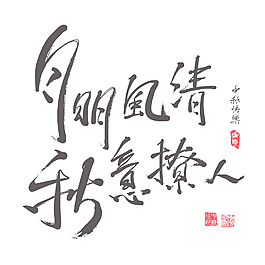 月明風清
秋意撩人
中秋快樂